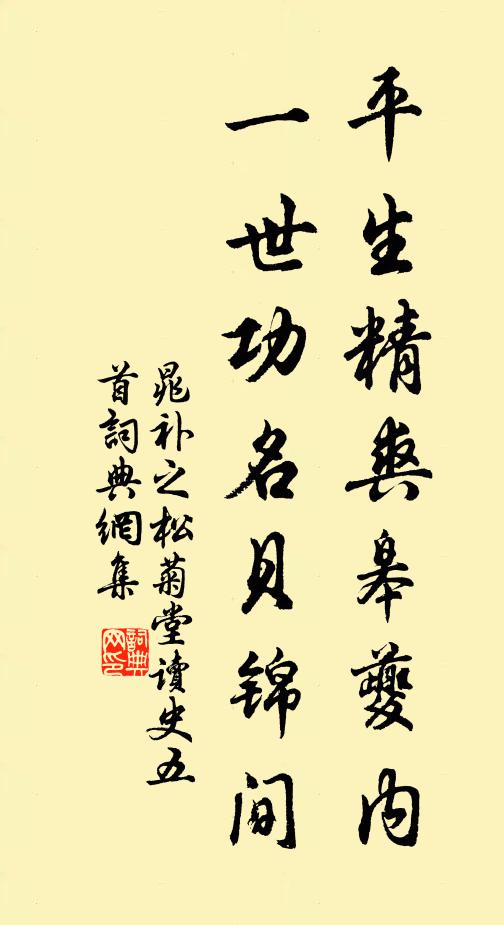 平生精爽皋夔内
一世功名貝錦間
晁補之松菊堂讀史五
首詞典網集
詞典網印